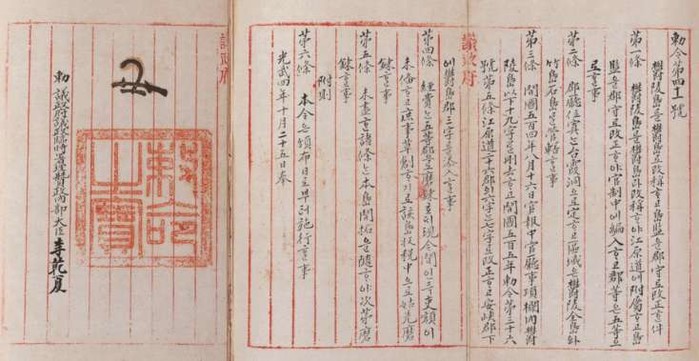 勅令第四十一號
鬱陵島를鬱島로改稱ᄒᆞ고島監을郡守로改正ᄒᆞᆫ件
第一條 鬱陵島를鬱島라改稱ᄒᆞ야江原道에附屬ᄒᆞ고島
監을郡守로改正ᄒᆞ야官制中에編入ᄒᆞ고郡等은五等으
로ᄒᆞᆯ事
第二條 郡廳位寘는台霞洞으로定ᄒᆞ고區域은鬱陵全島와
竹島石島를管轄ᄒᆞᆯ事
第三條 開國五百四年八月十六日官報中官廳事項欄內鬱
陵島以下十九字를刪去ᄒᆞ고開國五百五年勅令第三十六
號第五條江原道二十六郡의六字는七字로改正ᄒᆞ고安峽郡下
에鬱島郡三字를添入ᄒᆞᆯ事
第四條 經費는五等郡으로磨鍊호ᄃᆡ現今間인즉吏額이
未備ᄒᆞ고庶事草創ᄒᆞ기로該島收稅中으로姑先磨
鍊ᄒᆞᆯ事
第五條 未盡ᄒᆞᆫ諸條는本島開拓을隨ᄒᆞ야次第磨
鍊ᄒᆞᆯ事
附則
第六條 本令은頒布日로부터施行ᄒᆞᆯ事
光武四年十月二十五日奉
勅命之寶
勅 議政府議政臨時署理贊政內部大臣 李乾夏
議政府
議政府